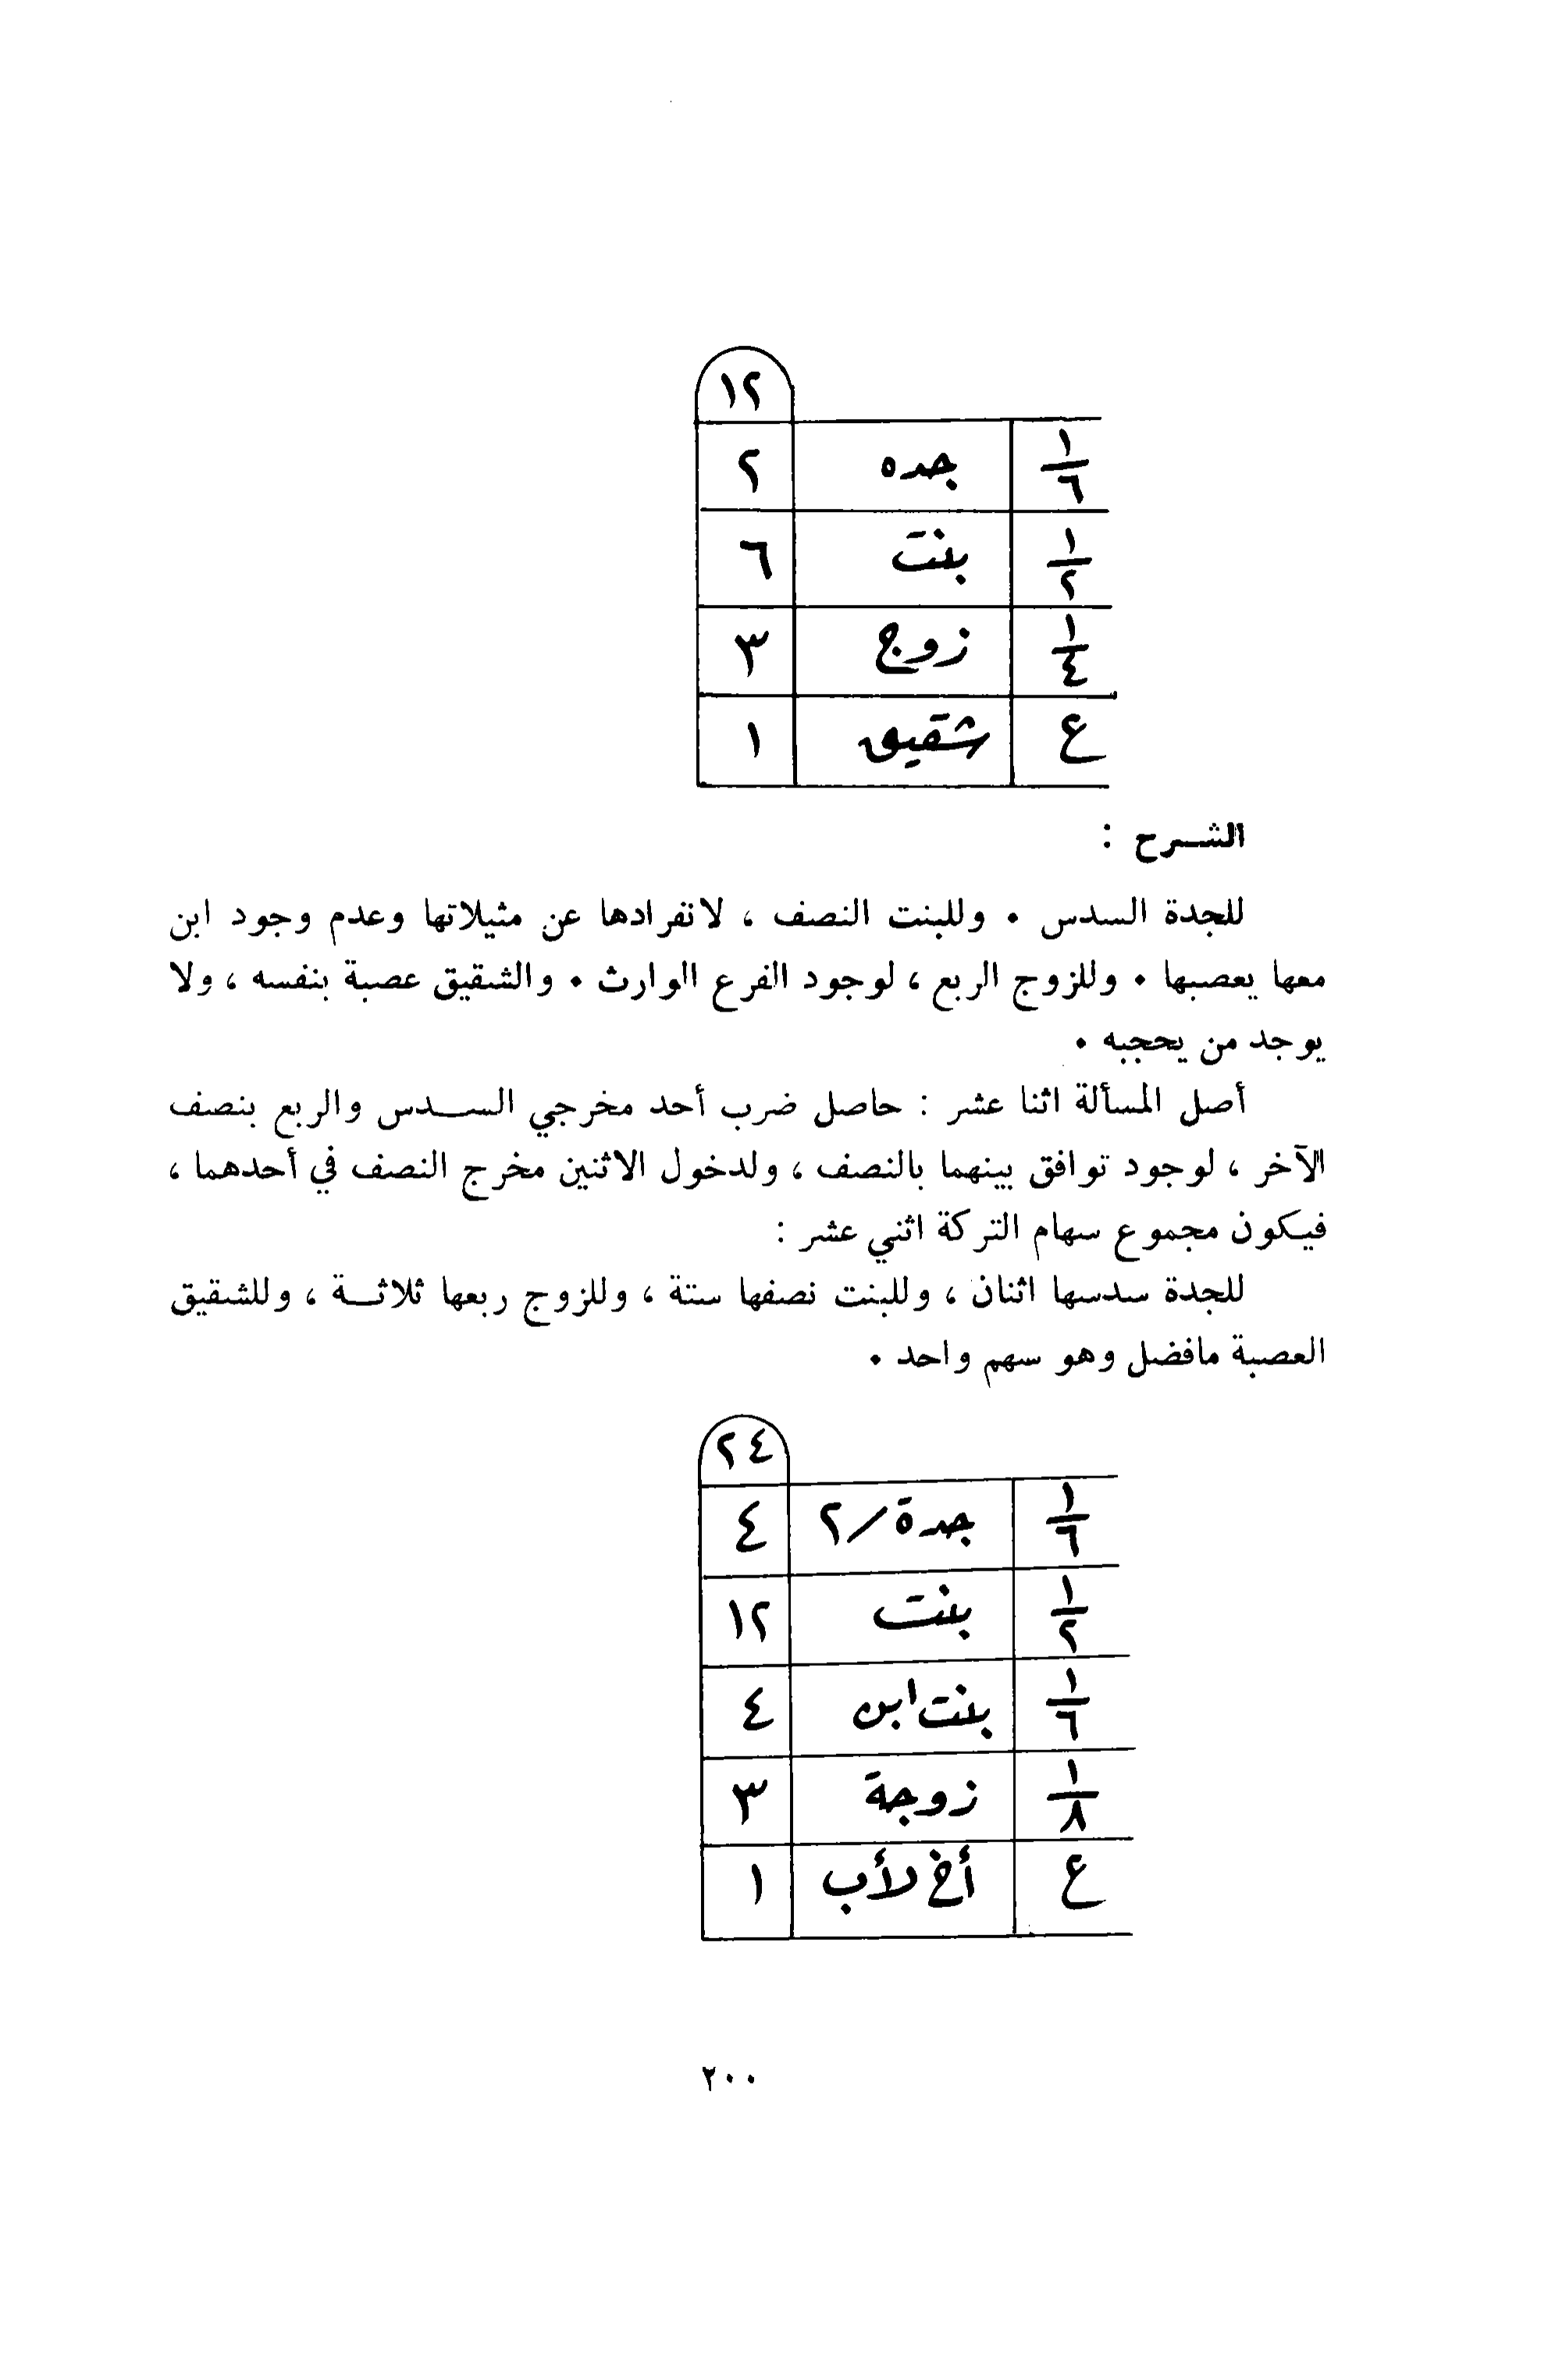 ١٢
١/٦ جده ٢
١/٢ بنت ٦
١/٤ زوج ٣
ع شقيق ١
الشــرح :
للجدة السدس • وللبنت النصف ، لانفرادها عن مثيلاتها وعدم وجود ابن
معها يعصبها • وللزوج الربع ، لوجود الفرع الوارث • والشقيق عصبة بنفسه ، ولا
يوجد من يحجبه •
أصل المسألة اثنا عشر : حاصل ضرب أحد مخرجي الســدس والربع بنصف
الآخر ، لوجود توافق بينهما بالنصف ، ولدخول الاثنين مخرج النصف في أحدهما ،
فيكون مجموع سهام التركة اثني عشر :
للجدة سدسها اثنان ، وللبنت نصفها ستة ، وللزوج ربعها ثلاثــة ، وللشقيق
العصبة مافضل وهو سهم واحد •
٢٤
١/٦ جدة/٢ ٤
١/٢ بنت ١٢
١/٦ بنت ابن ٤
١/٨ زوجة ٣
ع أخ لأب ١
٢٠٠